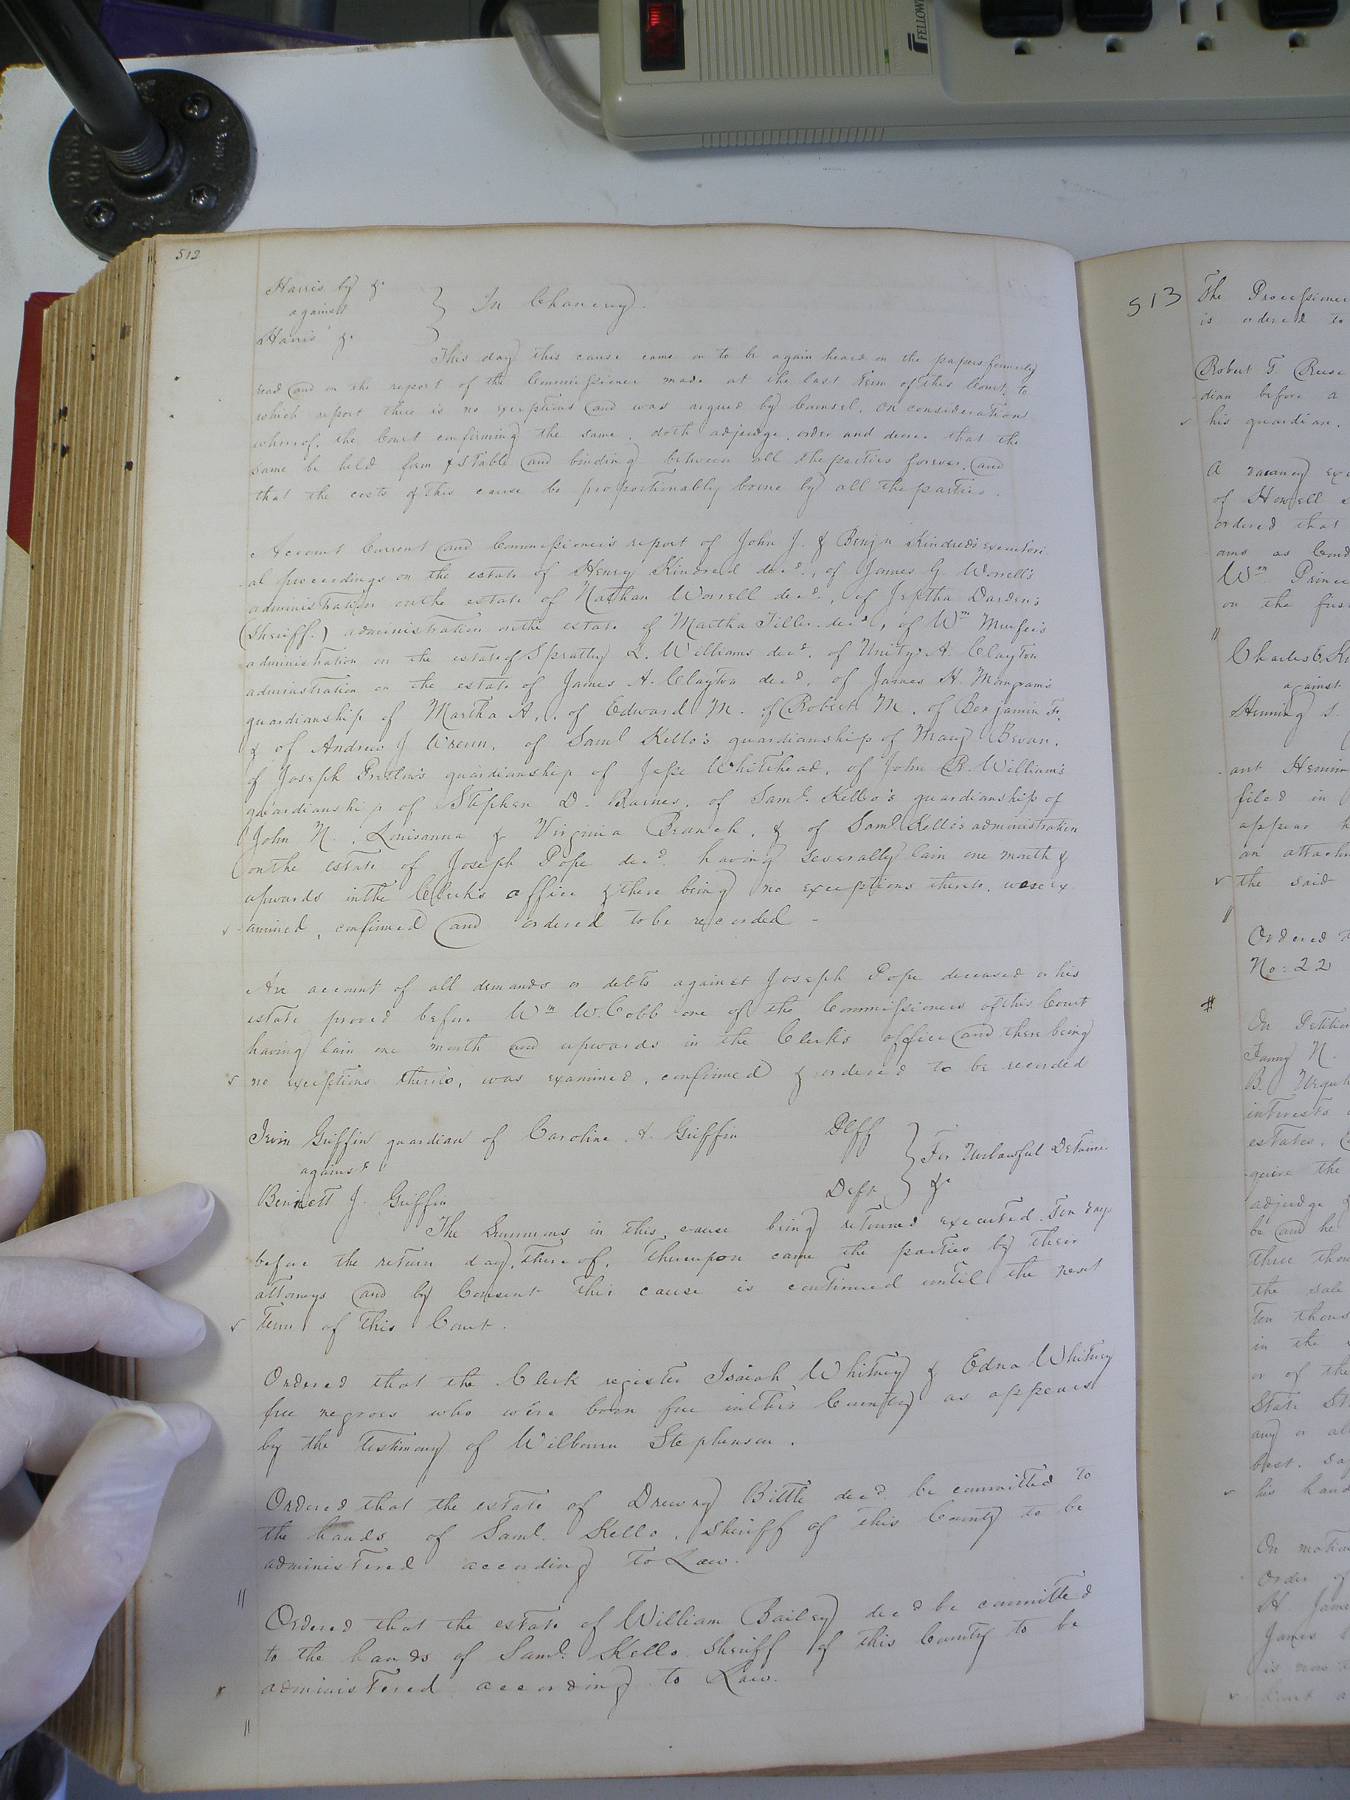 512
Harris by &c
against } In Chancery.
Harris &c }
This day this cause came on to be again heard on the papers formerly
read and on the report of the Commissioner made at the last term of this Court, to
which report there is no exceptions and was argued by Counsel. On consideration
whereof, the Court confirming the same, doth adjudge, order and decree that the
same be held firm & stable and binding between all the parties forever, and
that the costs of this cause be proportionably borne by all the parties.
Account Current and Commissioner's report of John J. & Benja Kindred's executori
al proceedings on the estate of Henry Kindred decd., of James G. Worrell's
administration on the estate of Nathan Worrell decd., of Jeptha Darden's
(Sheriff.) administration on the estate of Martha Tiller decd, of Wm Murfee's
administration on the estate of Spratley L. Williams decd. of Unity A. Clayton
administration on the estate of James A. Clayton decd, of James H. Mangram's
guardianship of Martha A., of Edward M. of Robert M., of Benjamin Fr.
& of Andrew J Wrenn, of Saml Kello's guardianship of Mary Bevan,
of Joseph guardianship of Jesse Whitehead, of John R. William's
guardianship of Stephen D. Barnes, of Saml. Kello's guardianship of
John N., Louisanna & Virginia Branch, & of Saml Kello's administration
on the estate of Joseph Pope decd. having severally lain one month &
upwards in the Clerk's office & there being no exceptions thereto, were ex
amined, confirmed and ordered to be recorded -
An account of all demands or debts against Joseph Pope deceased or his
estate proved before Wm W. Cobb one of the Commissioners of this Court
having lain one month and upwards in the Clerk's office and there being
no exceptions thereto, was examined, confirmed & ordered to be recorded
Irvin Griffin guardian of Caroline A. Griffin Plff
against } For Unlawful Detainer
Bennett J. Griffin Deft } &c
The Summons in this cause being returned executed Ten days
before the return day thereof, Thereupon came the parties by their
attorneys and by Consent this cause is continued until the next
Term of this Court.
Ordered that the Clerk register Isaiah Whitney & Edna Whitney
free negroes who were born free in this County as appears
by the testimony of Wilbourn Stephenson.
Ordered that the estate of Drewry Bittle decd. be committed to
the hands of Saml. Kello, Sheriff of this County to be
administered according to Law.
Ordered that the estate of William Bailey decd be committed
to the hands of Saml. Kello Sheriff of this County to be
administered according to Law.
513
The Processioner
is ordered to
Robert T. Reese
dian before a
his guardian.
A vacancy
of Howell
ordered that
ams as
Wm Prince
on the firs
Charles
against
Henning S.
ant Hennin
filed in
appear
an attach
the said
Ordered
No: 22
On Petition
Fanny N.
B. Urquh
interests
estates.
quire the
adjudge
be and he
three thou
the sale
Ten thous
in the
or of the
State St
any or al
best. Sa
his hand
On motion
Order of
H. Jame
James
is now
FELLOW